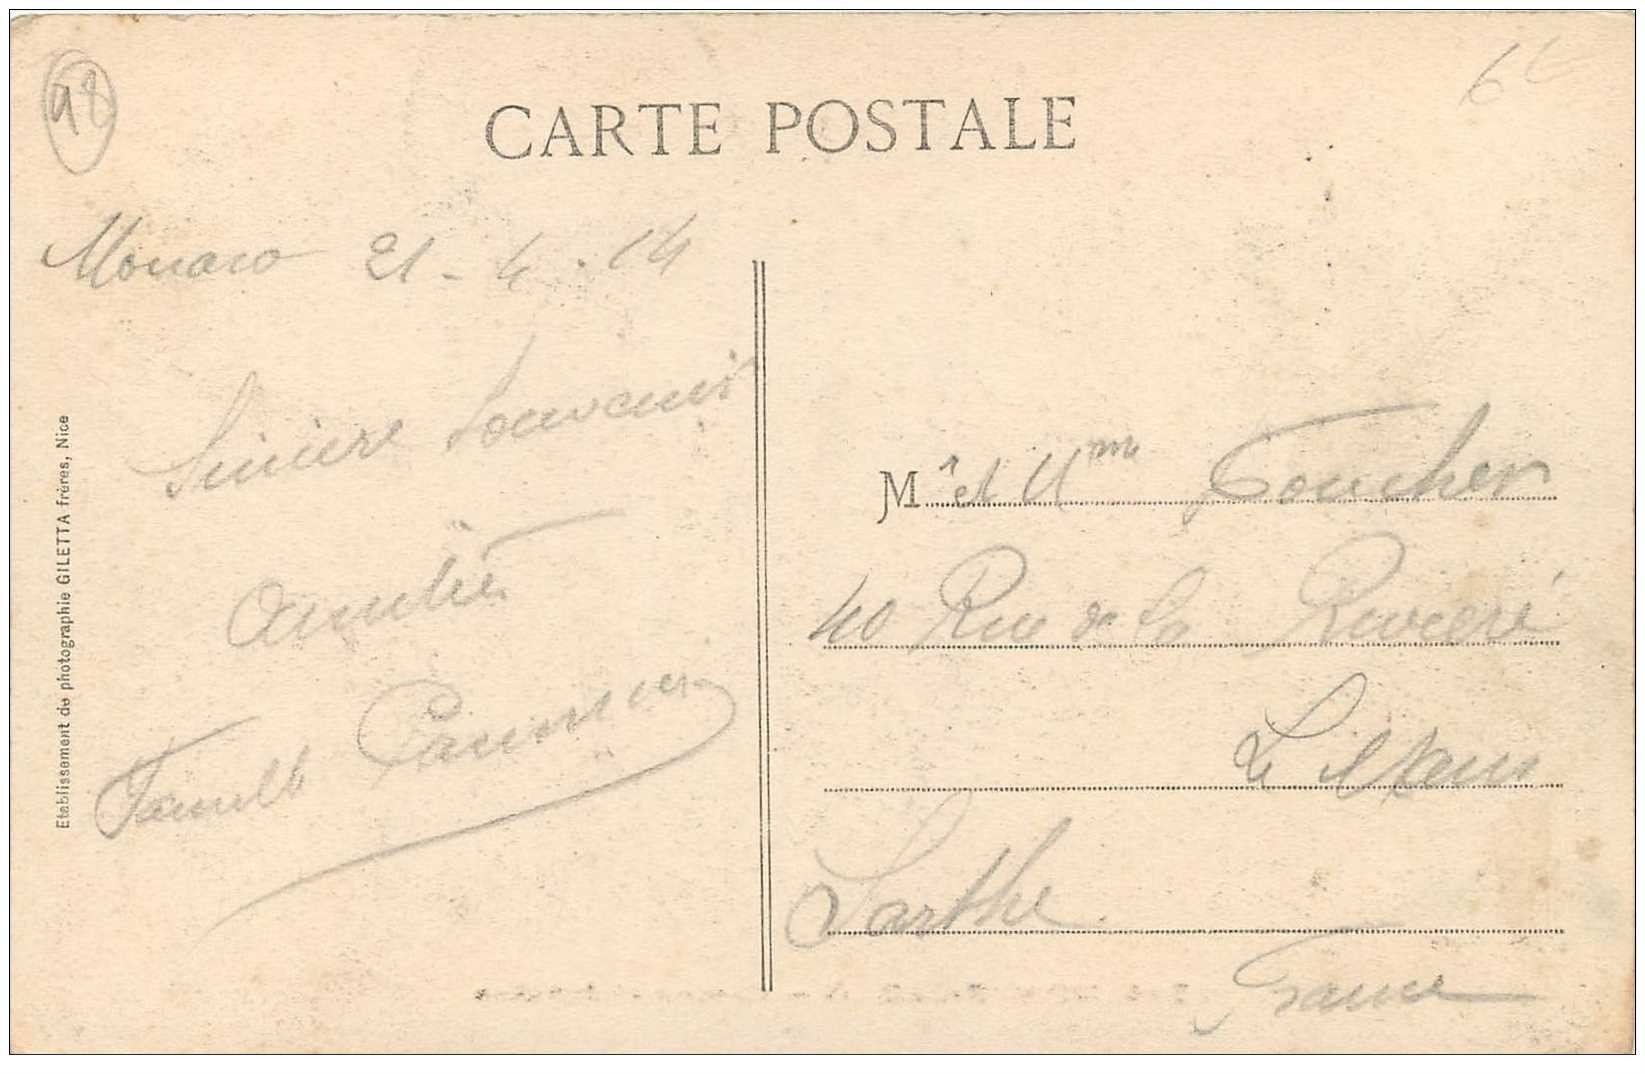 98
6€
CARTE POSTALE
Monaco 21-4.14
Sincere Souvenir
Amitié
Famille
Mr et Mme Foucher
40 Rue de la Riviere
Le Mans
Sarthe
France
Etablissement de photographie GILETTA frères, Nice